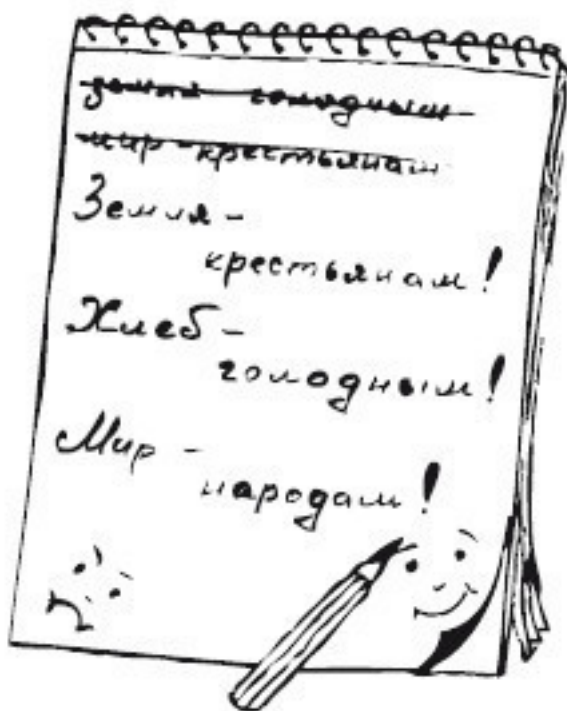 земля голодным
мир - крестьянам
Земля -
крестьянам!
Хлеб -
голодным!
Мир -
народам!